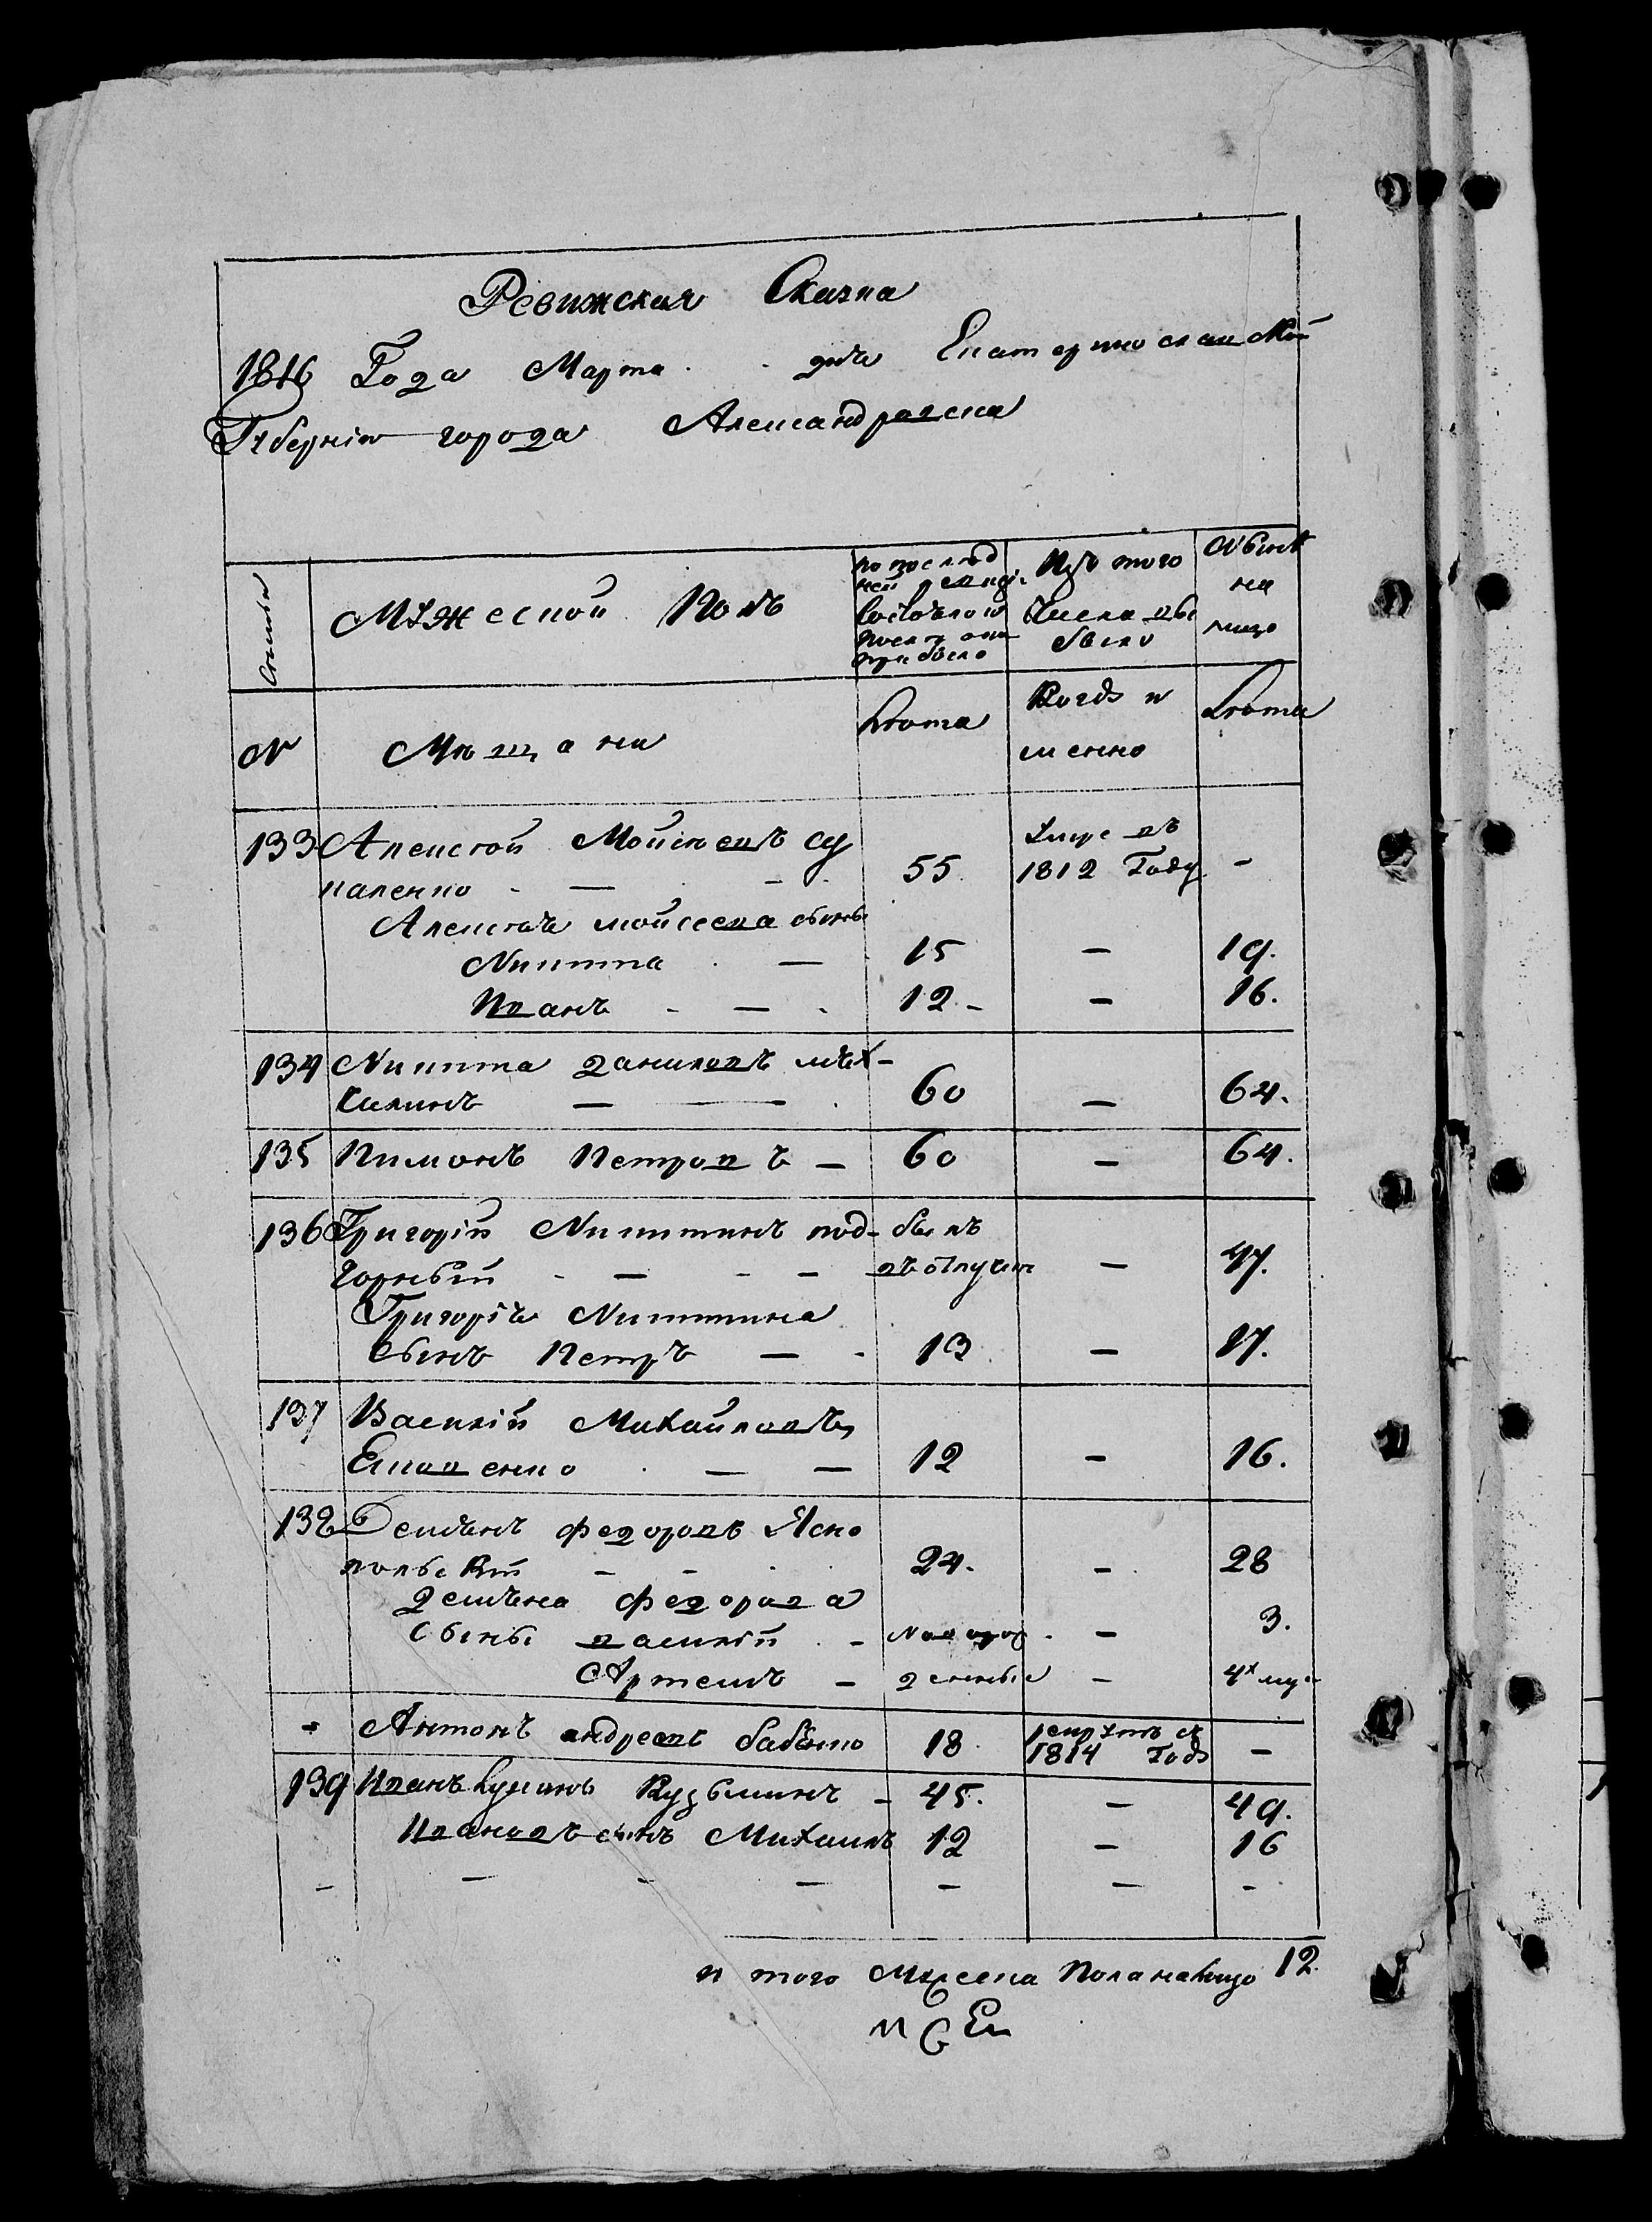 Ревижская Сказка
1816 Года Марта . . дня Екатеринославской
Губернии города Александровска
Семьи
Мужеской Полъ
по послед
ней ревизіи
состояло и
после оной
прибыло
Изъ того
Числа вы
было
Нынѣ
на
лицо
№
Мѣщани
Лѣта
Когда и
менно
Лѣта
133 Алексѣй Мойсѣевъ су
паленко - — - 55. Умре въ 1812 Году -
Алексѣя мойсеева сыны
Никита . — 15 — 19.
Иванъ - — . 12 - — 16.
134 Никита даниловъ мѣх-
Чилинъ — — . 60 — 64.
135 Пимонъ Петровъ — 60 — 64.
136 Григорій Никитинъ под-
горный - — - — былъ
въ отлучки — 47.
Григорія Никитина
Сынъ Петръ — - 13. — 17.
137 Василій Михайловъ
Ємовенко . — — 12 — 16.
138 Демьянъ федоровъ Ясно
польскій — - . 24. - . 28
демьяна федорова
Сыны василій . - Новорож - — 3.
Артемъ — денные — 4х мус
- Антонъ андреевъ бабенко 18. рекрутъ въ
1814 Годъ —
139 Иванъ Кузьминъ - 45. — 49.
Ивановъ сынъ Михаилъ 12 — 16
- — - — — — -
и того Мужеска Пола налицо 12.